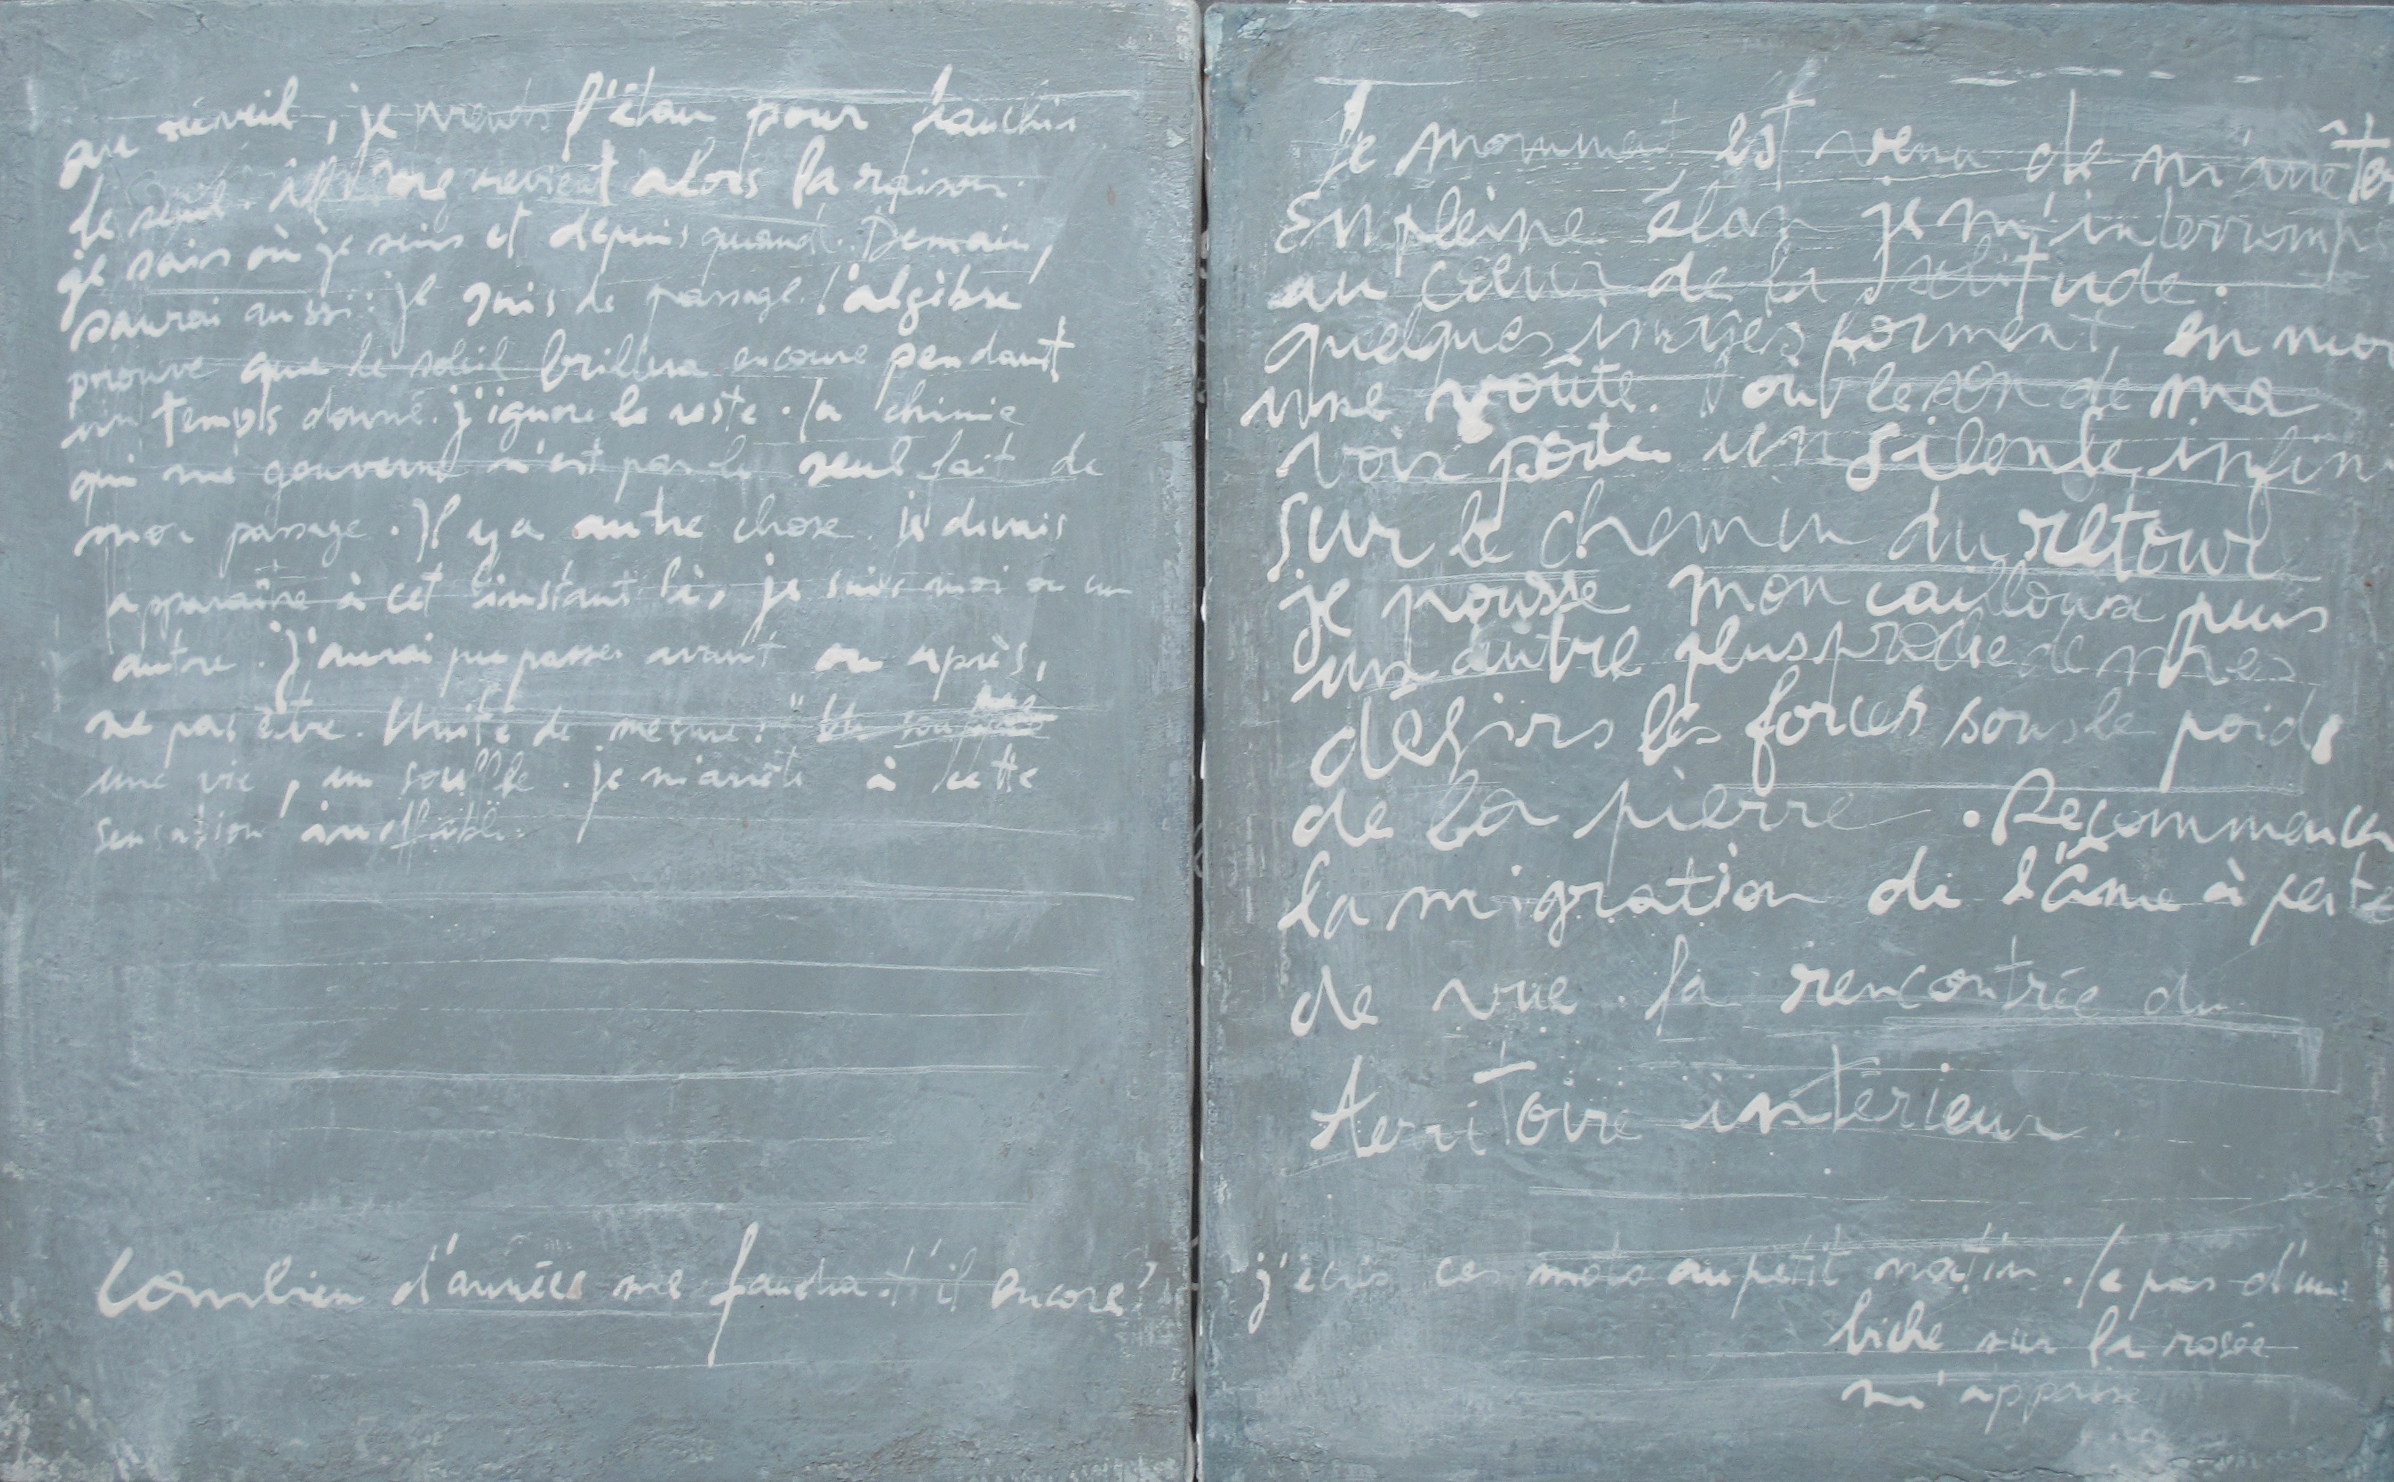 au réveil, je prends l'élan pour franchir
le seuil. il me revient alors la raison.
je sais où je suis et depuis quand. Demain,
saurai aussi : je suis de passage. l'algèbre
prouve que le soleil brillera encore pendant
un temps donné. j'ignore le reste. la chimie
qui me gouverne n'est pas le seul fait de
mon passage. Il y a autre chose. je devais
apparaître à cet instant là, je suis moi ou un
autre. J'aurai pu passer avant ou après,
ne pas être. Unité de mesure : "
une vie, un souffle. je m'arrête à cette
sensation ineffable.
Combien d'années me faudra-t'il encore?
Le moment est venu de m'arrêter
En pleine élan je m'interromps
au cœur de la solitude.
quelques images forment, en moi
une voûte. où le son de ma
voix porte un silence infini
Sur le chemin du retour
je pousse mon cailloux puis
un autre plus proche de mes
désirs les forces sous le poids
de la pierre. Recommencer
la migration de l'âme à perte
de vue. la rencontre du
territoire intérieur.
j'écris ces mots au petit matin. le pas d'une
biche sur la rosée
m'appaise